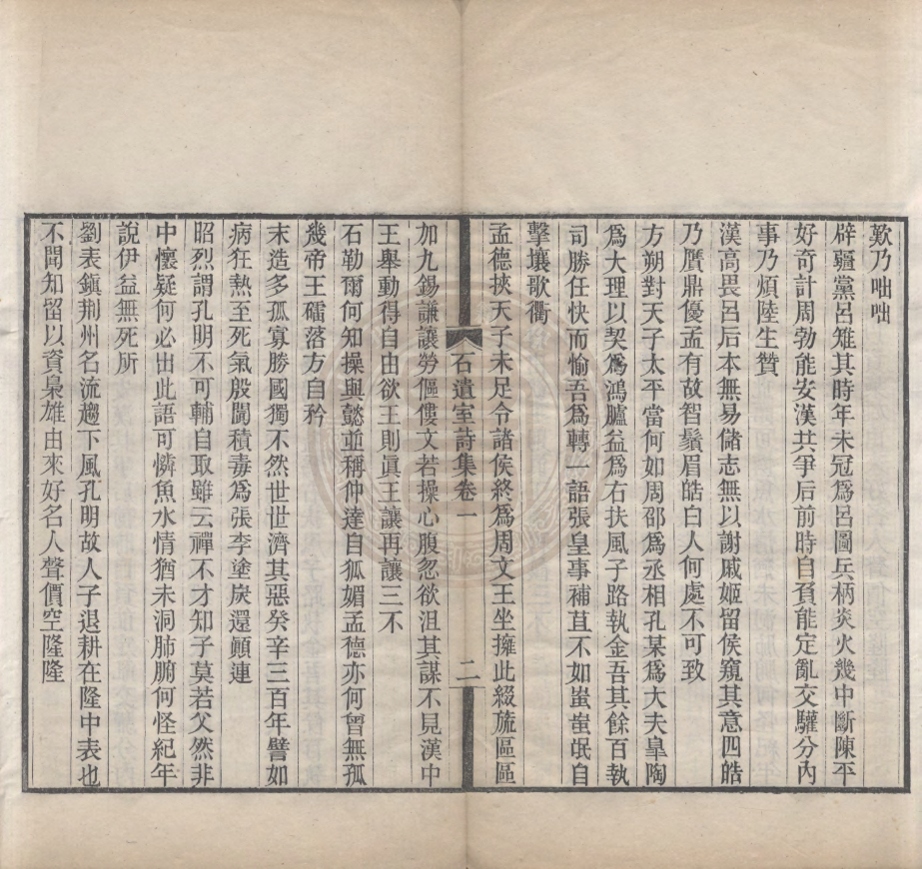 歎乃咄咄
辟疆黨呂雉其時年未冠爲呂圖兵柄炎火幾中斷陳平
好奇計周勃能安漢共爭后前時自負能定亂交驩分內
事乃煩陸生贊
漢高畏呂后本無易儲志無以謝戚姬留侯窺其意四皓
乃贋鼎優孟有故智鬚眉皓白人何處不可致
方朔對天子太平當何如周邵爲丞相孔某爲大夫皐陶
爲大理以契爲鴻臚益爲右扶風子路執金吾其餘百執
司勝任快而愉吾爲轉一語張皇事補苴不如蚩蚩氓自
擊壤歌衢
孟德挾天子未足令諸侯終爲周文王坐擁此綴旒區區
石遺室詩集卷一
二
加九錫謙讓勞傴僂文若操心腹忽欲沮其謀不見漢中
王舉動得自由欲王則眞王讓再讓三不
石勒爾何知操與懿並稱仲達自狐媚孟德亦何曾無孤
幾帝王礌落方自矜
末造多孤寡勝國獨不然世世濟其惡癸辛三百年譬如
病狂熱至死氣殷闐積毒爲張李塗炭還顚連
昭烈謂孔明不可輔自取雖云禪不才知子莫若父然非
中懷疑何必出此語可憐魚水情猶未洞肺腑何怪紀年
說伊益無死所
劉表鎭荆州名流趨下風孔明故人子退耕在隆中表也
不聞知留以資梟雄由來好名人聲價空隆隆